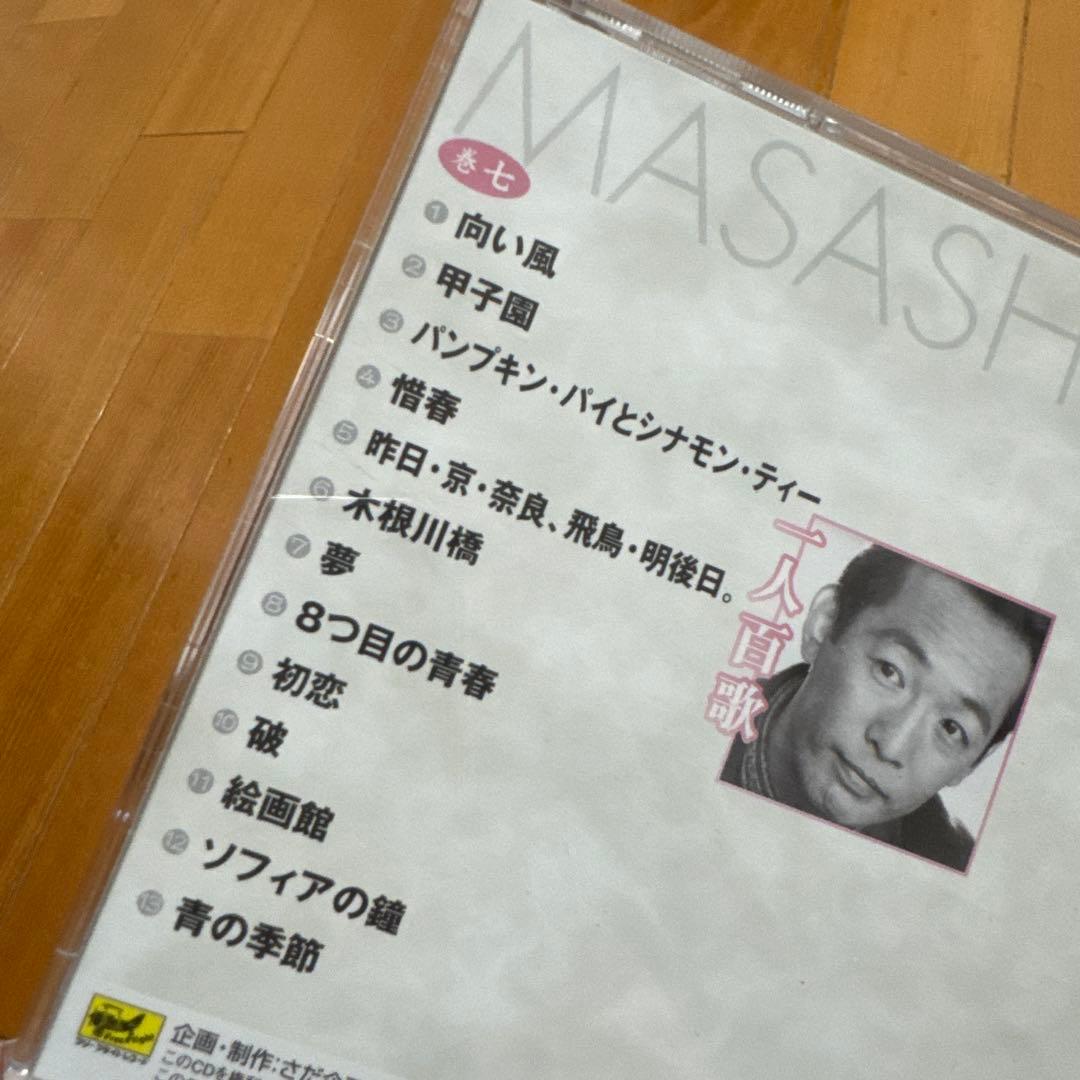 MASASH
巻七
1 向い風
2 甲子園
3 パンプキン・パイとシナモン・ティー
4 惜春
5 昨日・京・奈良、飛鳥・明後日。
6 木根川橋
7 夢
8 8つ目の青春
9 初恋
10 破
11 絵画館
12 ソフィアの鐘
13 青の季節
一人百歌
企画・制作:さだ企
このCDを権利